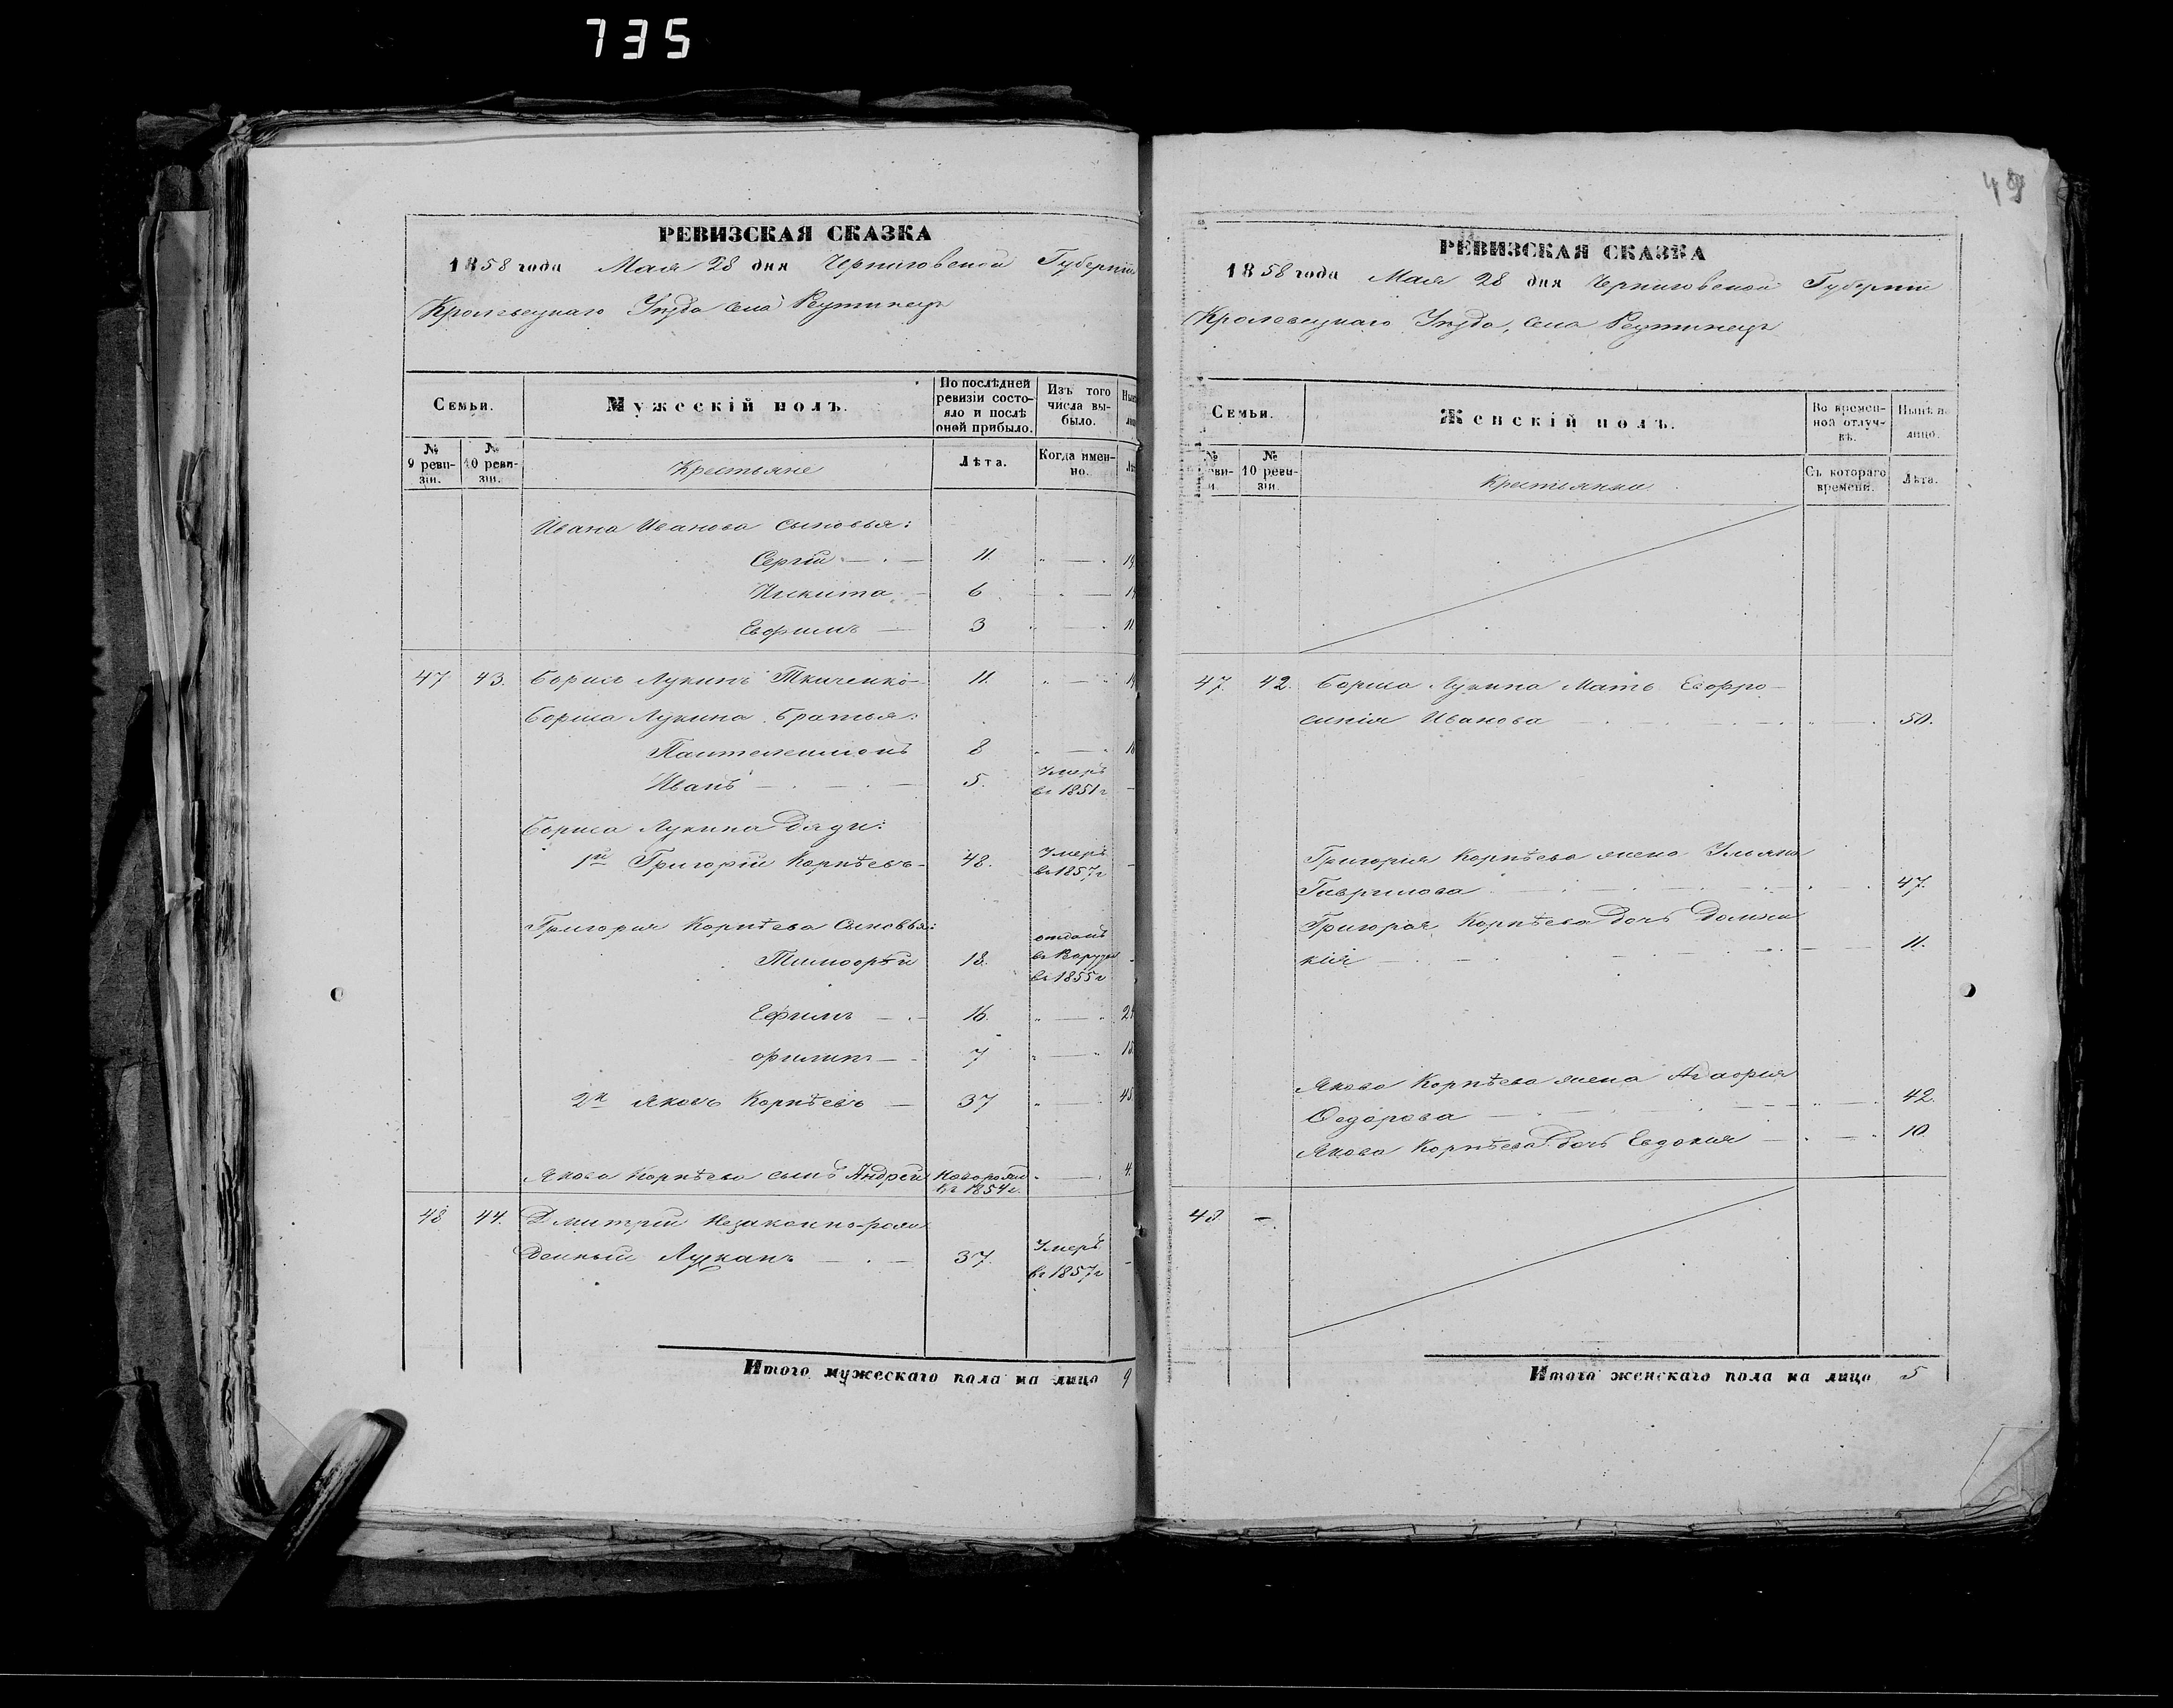 735
РЕВИЗСКАЯ СКАЗКА
1858 года Мая 28 дня Черниговской Губерніи
Кролевецкаго Уѣзда Села Реутинецъ
Семьи.
Мужескій полъ.
По послѣдней ревизіи состояло и послѣ оной прибыло.
Изъ того числа выбыло.
№ 9 ревизіи.
№ 10 ревизіи.
Крестьяне
Лѣта.
Когда именно.
Ивана Иванова сыновья:
Сергій 11.
Никита 6
Евфимъ 3
47 43. Борисъ Лукинъ Ткаченко 11.
Бориса Лукина братья:
Пантелеимонъ 8
Иванъ 5. Умеръ въ 1851 г
Бориса Лукина дяди:
1й Григорій Корнѣевъ 48. Умеръ въ 1857 г
Григорія Корнѣева Сыновья:
Тимофѣй 18. отданъ въ 1855 г
Ефимъ 16. 24
Филипъ 7 15
2й Яковъ Корнѣевъ 37 45
Якова Корнѣева сынъ Андрей Новорожд. въ 1854 г. 4.
48 44. Дмитрій Незаконно-рож
денный Луканъ 37. Умеръ въ 1857 г
Итого мужескаго пола на лицо 9
49
РЕВИЗСКАЯ СКАЗКА
1858 года Мая 28 дня Черниговской Губерніи
Кролевецкаго Уѣзда, Села Реутинецъ
Семьи.
Женскій полъ.
Во временной отлучкѣ.
Нынѣ на лицо.
№ 10 ревизіи.
Крестьянки
Съ котораго времени.
Лѣта.
47. 42. Бориса Лукина Мать Евфро-
синія Иванова 50.
Григорія Корнѣева жена Ульяна
Гаврилова 47.
Григорія Корнѣева дочь Домни
кія 11.
Якова Корнѣева жена Агафія
Федорова 42.
Якова Корнѣева дочь Евдокія 10.
48 -
Итого женскаго пола на лицо 5